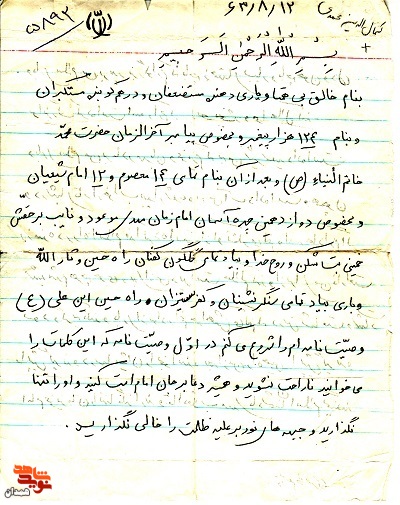 کمال الدین محمدی
۶۳/۸/۱۲
۵۸۹۲
بسم الله الرحمن الرحیم
بنام خالق بی همتا و یاری دهنده مستضعفان و درهم کوبنده مستکبران
و بنام ۱۲۴ هزار پیغمبر و بخصوص پیامبر آخرالزمان حضرت محمد
خاتم الانبیاء (ص) و بعد از آن بنام تمامی ۱۴ معصوم و ۱۲ امام شیعیان
و بخصوص دوازدهمین چهره آسمان امام زمان مهدی موعود و نایب برحقش
خمینی بت شکن و روح خدا و بیاد تمامی گلگون کفنان راه حسین و ثار الله
و یاری بیاد تمامی سنگرنشینان و کفر ستیزان راه حسین ابن علی (ع)
وصیت نامه ام را شروع می کنم در اول وصیت نامه که این کلمات را
می خوانید ناراحت نشوید و همیشه دعا بر جان امام امت کنید و او را تنها
نگذارید و جبهه های نور بر علیه ظلمت را خالی نگذارید.
شاهد
نوید